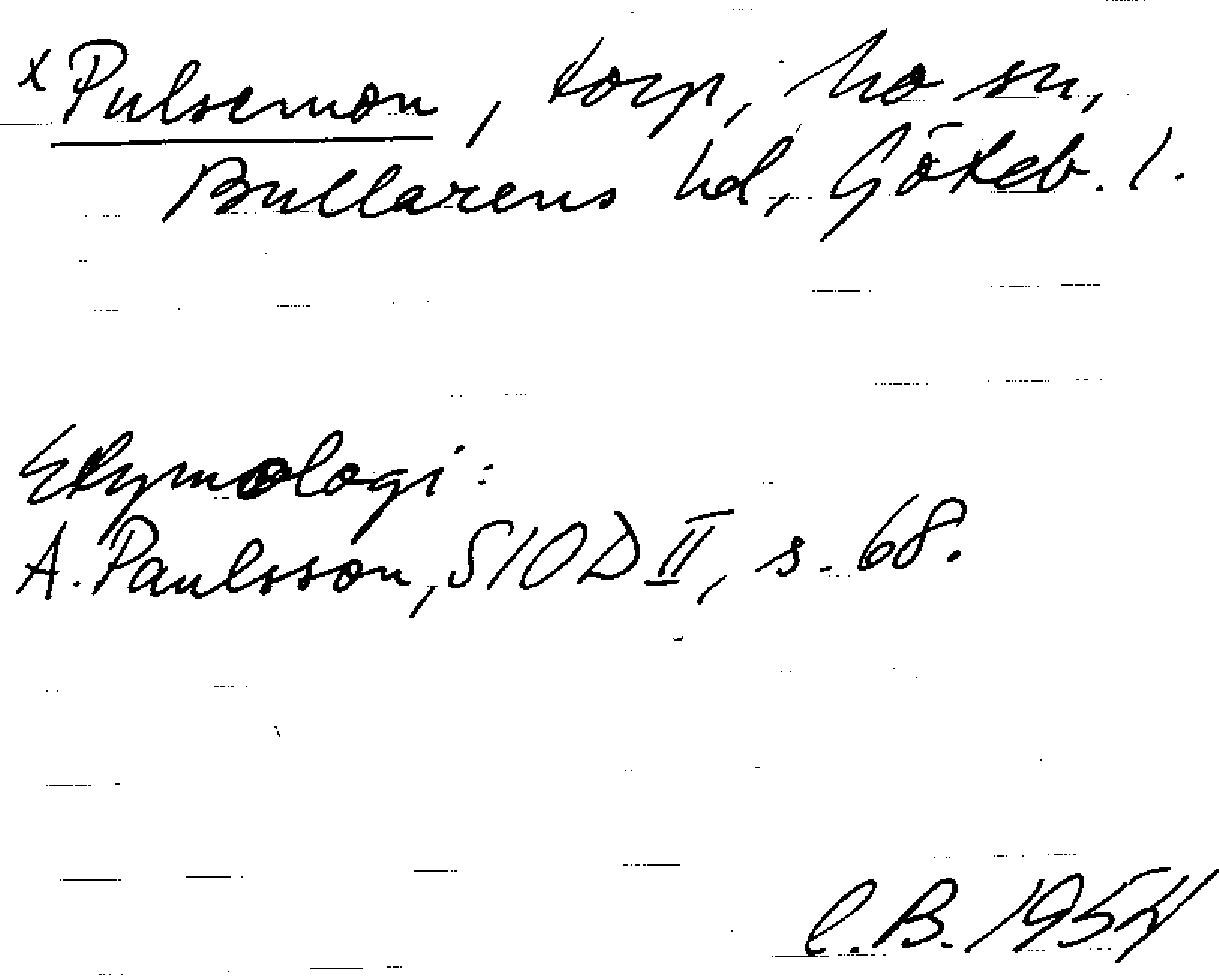 x Pulsemon, torp, Mo sn,
Bullarens hd, Göteb. l.
Etymologi:
A. Paulsson, SIOD II, s. 68.
C.B. 1954